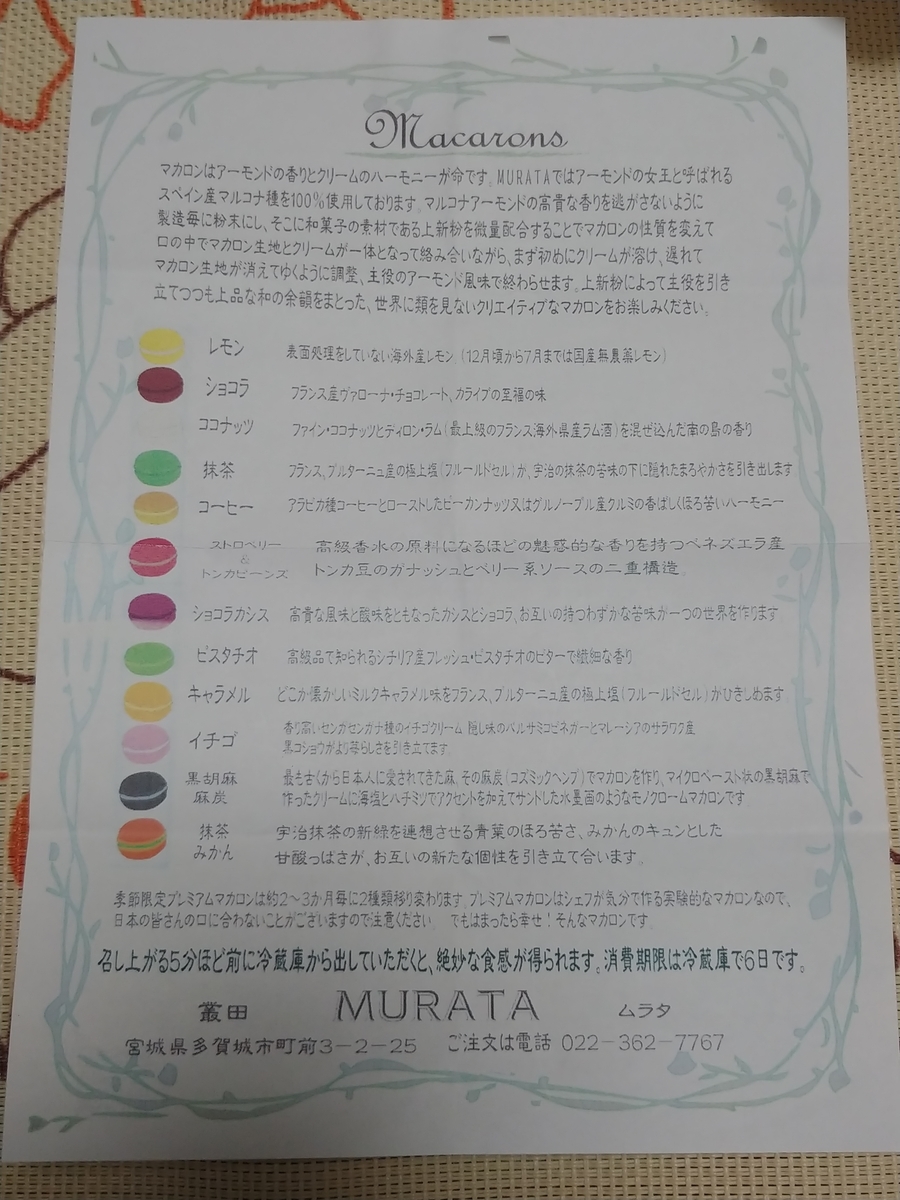 Macarons
マカロンはアーモンドの香りとクリームのハーモニーが命です。MURATAではアーモンドの女王と呼ばれる
スペイン産マルコナ種を100%使用しております。マルコナアーモンドの高貴な香りを逃がさないように
製造毎に粉末にし、そこに和菓子の素材である上新粉を微量配合することでマカロンの性質を変えて
口の中でマカロン生地とクリームが一体となって絡み合いながら、まず初めにクリームが溶け、遅れて
マカロン生地が消えてゆくように調整、主役のアーモンド風味で終わらせます。上新粉によって主役を引き
立てつつも上品な和の余韻をまとった、世界に類を見ないクリエイティブなマカロンをお楽しみください。
レモン 表面処理をしていない海外産レモン。(12月頃から7月までは国産無農薬レモン)
ショコラ フランス産ヴァローナ・チョコレート、カライブの至福の味
ココナッツ ファイン・ココナッツとディロン・ラム(最上級のフランス海外県産ラム酒)を混ぜ込んだ南の島の香り
抹茶 フランス、ブルターニュ産の極上塩(フルールドセル)が、宇治の抹茶の苦味の下に隠れたまろやかさを引き出します
コーヒー アラビカ種コーヒーとローストしたピーカンナッツ又はグルノーブル産クルミの香ばしくほろ苦いハーモニー
ストロベリー
&
トンカビーンズ
高級香水の原料になるほどの魅惑的な香りを持つベネズエラ産
トンカ豆のガナッシュとベリー系ソースの二重構造。
ショコラカシス 高貴な風味と酸味をともなったカシスとショコラ、お互いの持つわずかな苦味が一つの世界を作ります
ピスタチオ 高級品で知られるシチリア産フレッシュ・ピスタチオのビターで繊細な香り
キャラメル どこか懐かしいミルクキャラメル味をフランス、ブルターニュ産の極上塩(フルールドセル)がひきしめます。
イチゴ
香り高いセンガセンガナ種のイチゴクリーム 隠し味のバルサミコビネガーとマレーシアのサラワク産
黒コショウがより苺らしさを引き立てます。
黒胡麻
麻炭
最も古くから日本人に愛されてきた麻。その麻炭(コズミックヘンプ)でマカロンを作り、マイクロペースト状の黒胡麻で
作ったクリームに海塩とハチミツでアクセントを加えてサンドした水墨画のようなモノクロームマカロンです。
抹茶
みかん
宇治抹茶の新緑を連想させる青葉のほろ苦さ、みかんのキュンとした
甘酸っぱさが、お互いの新たな個性を引き立て合います。
季節限定プレミアムマカロンは約2~3か月毎に2種類移り変わります。プレミアムマカロンはシェフが気分で作る実験的なマカロンなので、
日本の皆さんの口に合わないことがございますので注意ください。 でもはまったら幸せ!そんなマカロンです。
召し上がる5分ほど前に冷蔵庫から出していただくと、絶妙な食感が得られます。消費期限は冷蔵庫で6日です。
叢田 MURATA ムラタ
宮城県多賀城市町前3-2-25 ご注文は電話 022-362-7767